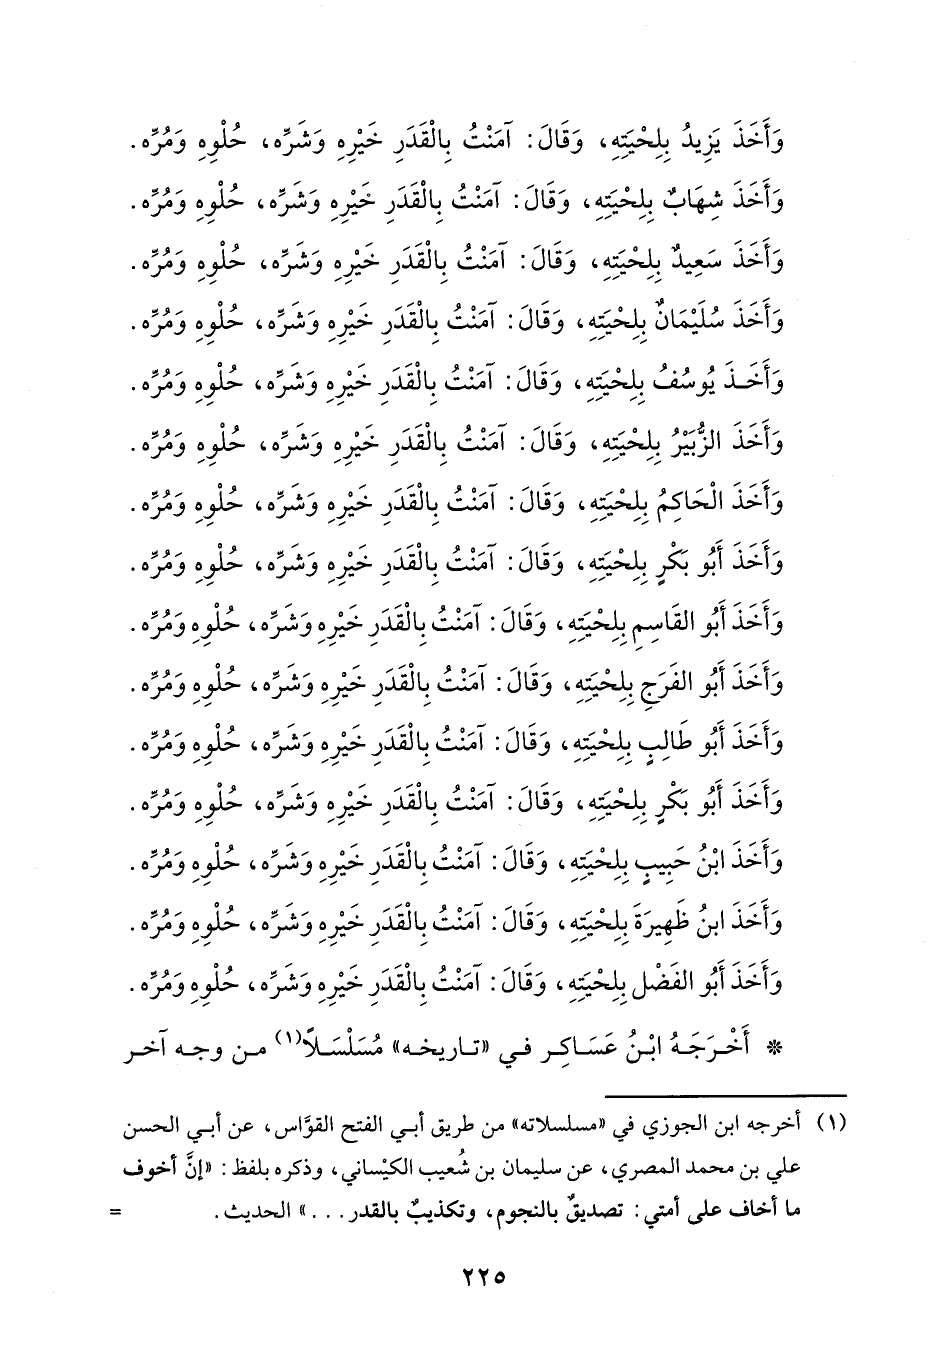 وَأَخَذَ يَزِيدُ بِلِحْيَتِهِ، وَقَالَ: آمَنْتُ بِالْقَدَرِ خَيْرِهِ وَشَرِّهِ، حُلْوِهِ وَمُرِّهِ.
وَأَخَذَ شِهَابٌ بِلِحْيَتِهِ، وَقَالَ: آمَنْتُ بِالْقَدَرِ خَيْرِهِ وَشَرِّهِ، حُلْوِهِ وَمُرِّهِ.
وَأَخَذَ سَعِيدٌ بِلِحْيَتِهِ، وَقَالَ: آمَنْتُ بِالْقَدَرِ خَيْرِهِ وَشَرِّهِ، حُلْوِهِ وَمُرِّهِ.
وَأَخَذَ سُلَيْمَانُ بِلِحْيَتِهِ، وَقَالَ: آمَنْتُ بِالْقَدَرِ خَيْرِهِ وَشَرِّهِ، حُلْوِهِ وَمُرِّهِ.
وَأَخَذَ يُوسُفُ بِلِحْيَتِهِ، وَقَالَ: آمَنْتُ بِالْقَدَرِ خَيْرِهِ وَشَرِّهِ، حُلْوِهِ وَمُرِّهِ.
وَأَخَذَ الزُّبَيْرُ بِلِحْيَتِهِ، وَقَالَ: آمَنْتُ بِالْقَدَرِ خَيْرِهِ وَشَرِّهِ، حُلْوِهِ وَمُرِّهِ.
وَأَخَذَ الْحَاكِمُ بِلِحْيَتِهِ، وَقَالَ: آمَنْتُ بِالْقَدَرِ خَيْرِهِ وَشَرِّهِ، حُلْوِهِ وَمُرِّهِ.
وَأَخَذَ أَبُو بَكْرٍ بِلِحْيَتِهِ، وَقَالَ: آمَنْتُ بِالْقَدَرِ خَيْرِهِ وَشَرِّهِ، حُلْوِهِ وَمُرِّهِ.
وَأَخَذَ أَبُو القَاسِمِ بِلِحْيَتِهِ، وَقَالَ: آمَنْتُ بِالْقَدَرِ خَيْرِهِ وَشَرِّهِ، حُلْوِهِ وَمُرِّهِ.
وَأَخَذَ أَبُو الفَرَجِ بِلِحْيَتِهِ، وَقَالَ: آمَنْتُ بِالْقَدَرِ خَيْرِهِ وَشَرِّهِ، حُلْوِهِ وَمُرِّهِ.
وَأَخَذَ أَبُو طَالِبٍ بِلِحْيَتِهِ، وَقَالَ: آمَنْتُ بِالْقَدَرِ خَيْرِهِ وَشَرِّهِ، حُلْوِهِ وَمُرِّهِ.
وَأَخَذَ أَبُو بَكْرٍ بِلِحْيَتِهِ، وَقَالَ: آمَنْتُ بِالْقَدَرِ خَيْرِهِ وَشَرِّهِ، حُلْوِهِ وَمُرِّهِ.
وَأَخَذَ ابْنُ حَبِيبٍ بِلِحْيَتِهِ، وَقَالَ: آمَنْتُ بِالْقَدَرِ خَيْرِهِ وَشَرِّهِ، حُلْوِهِ وَمُرِّهِ.
وَأَخَذَ ابنُ ظَهِيرَةَ بِلِحْيَتِهِ، وَقَالَ: آمَنْتُ بِالْقَدَرِ خَيْرِهِ وَشَرِّهِ، حُلْوِهِ وَمُرِّهِ.
وَأَخَذَ أَبُو الفَضْلِ بِلِحْيَتِهِ، وَقَالَ: آمَنْتُ بِالْقَدَرِ خَيْرِهِ وَشَرِّهِ، حُلْوِهِ وَمُرِّهِ.
* أَخْرَجَهُ ابْنُ عَسَاكِر في «تاريخه» مُسَلْسَلاً(١) من وجه آخر
(١) أخرجه ابن الجوزي في «مسلسلاته» من طريق أبي الفتح القوَّاس، عن أبي الحسن
علي بن محمد المصري، عن سليمان بن شُعيب الكيْساني، وذكره بلفظ: «إنَّ أخوف
ما أخاف على أمتي: تصديقٌ بالنجوم، وتكذيبٌ بالقدر...» الحديث. =
٢٢٥